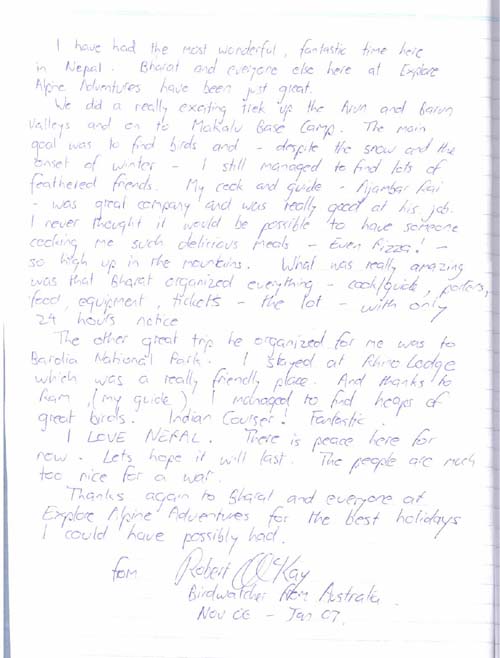 I have had the most wonderful, fantastic time here
in Nepal. Bharat and everyone else here at Explore
Alpine Adventures have been just great.
We did a really exciting trek up the Arun and Barun
Valleys and on to Makalu Base Camp. The main
goal was to find birds and - despite the snow and the
onset of winter - I still managed to find lots of
feathered friends. My cook and guide - Ajambar Rai
- was great company and was really good at his job.
I never thought it would be possible to have someone
cooking me such delicious meals - Even Pizza! -
so high up in the mountains. What was really amazing
was that Bharat organized everything - cook/guide, porters,
food, equipment, tickets - the lot - with only
24 hours notice
The other great trip he organized for me was to
Bardia National Park. I stayed at Rhino Lodge
which was a really friendly place. And thanks to
Ram (my guide) I managed to find heaps of
great birds. Indian Courser! Fantastic.
I LOVE NEPAL. There is peace here for
now. Lets hope it will last. The people are much
too nice for a war.
Thanks again to Bharat and everyone at
Explore Alpine Adventures for the best holidays
I could have possibly had.
from Robert McKay
Birdwatcher from Australia.
Nov 06 - Jan 07.